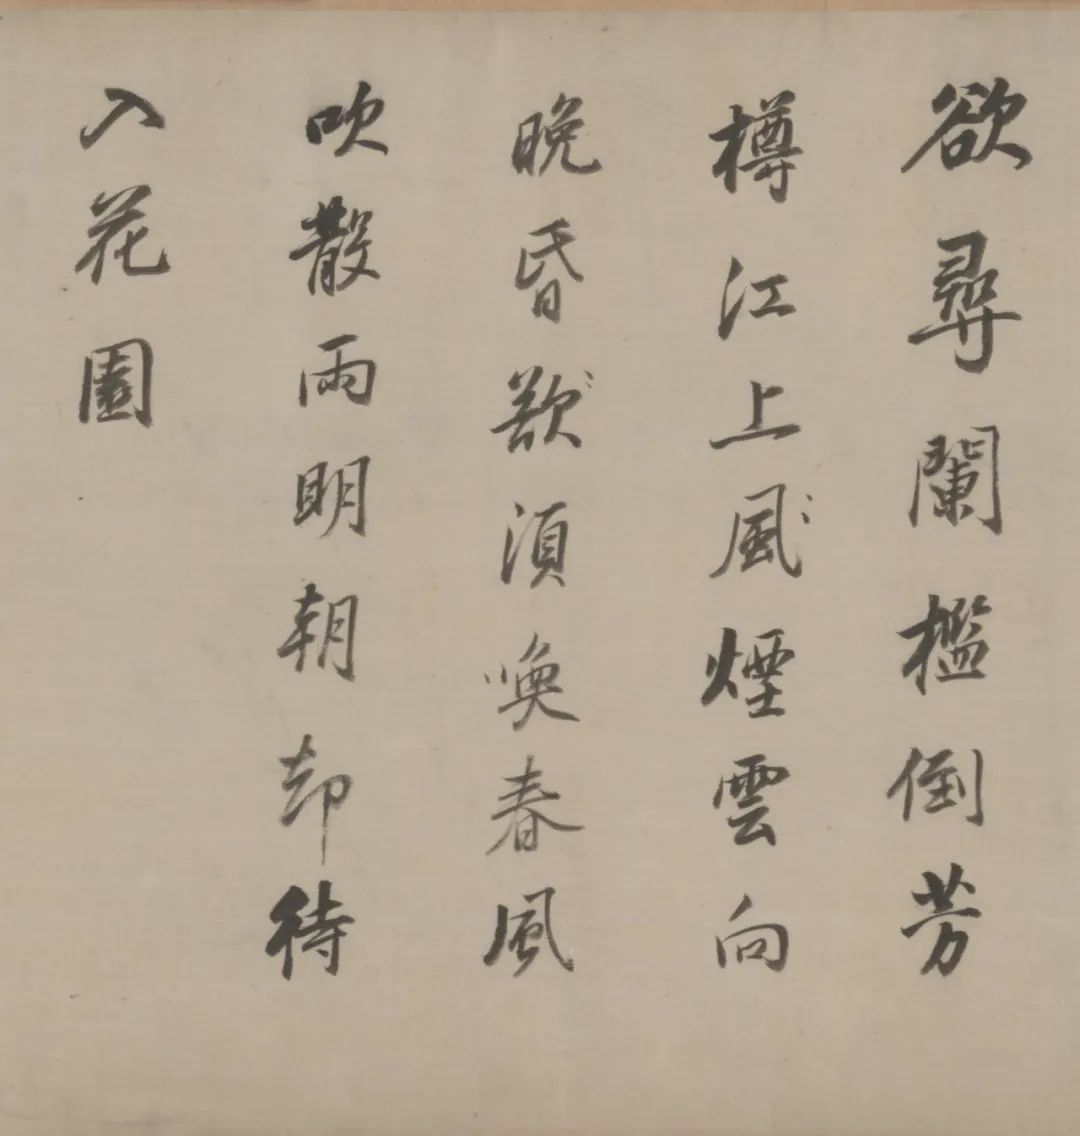 欲尋闌檻倒芳
樽江上風煙雲向
晚昏歎須喚春風
吹散雨明朝却待
入花園